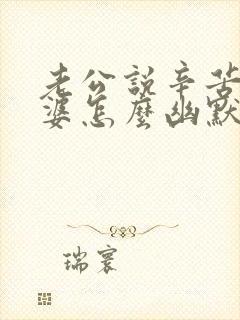 老公說辛苦
婆怎麼幽默
瑞寰